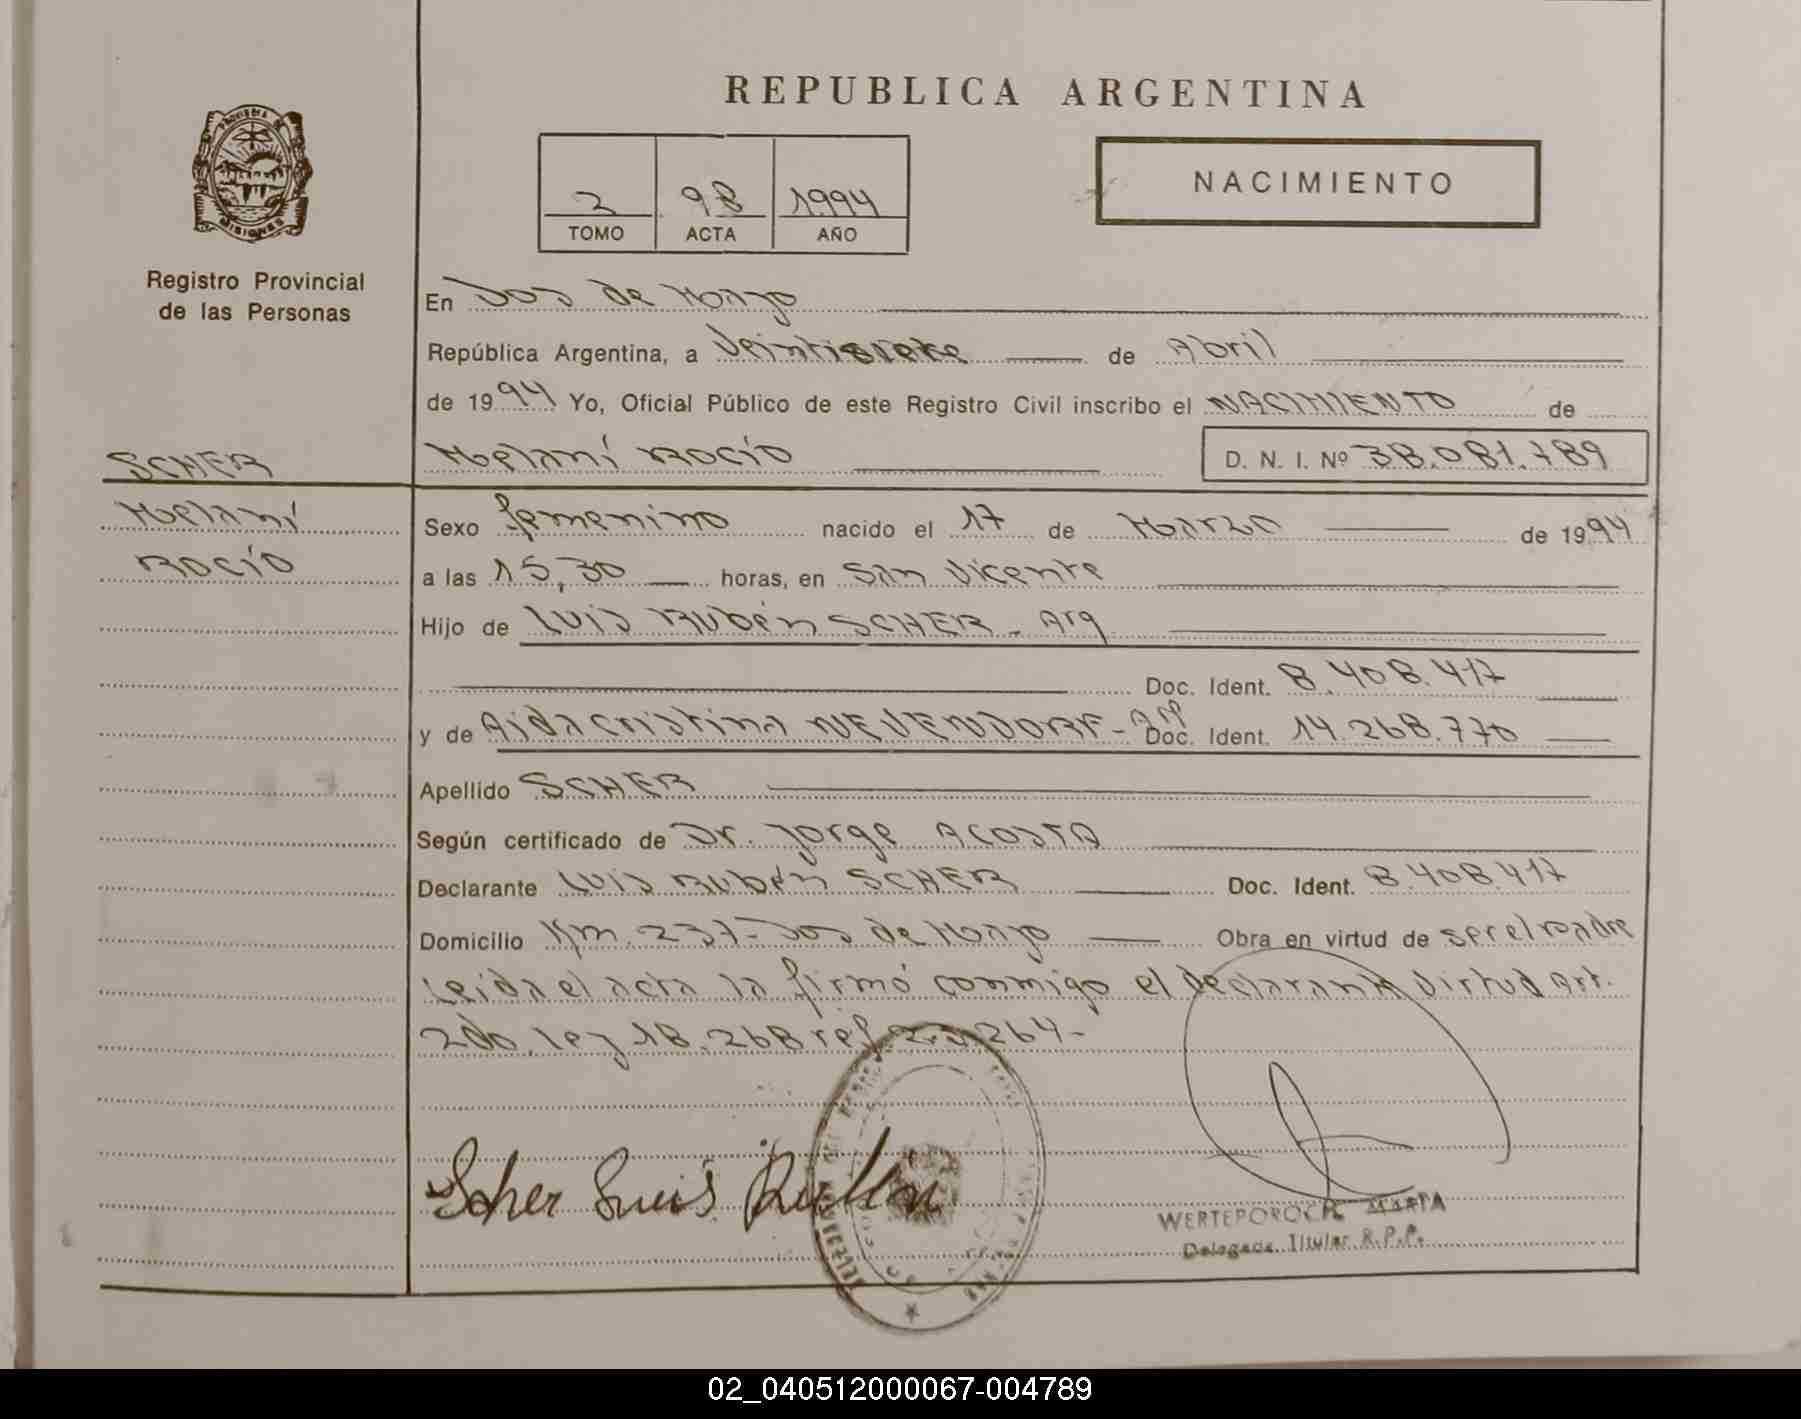 REPUBLICA ARGENTINA
PROVINCIA DE
MISIONES
Registro Provincial
de las Personas
NACIMIENTO
2 98 1994
TOMO ACTA AÑO
En Dos de Mayo
República Argentina, a Veintisiete de Abril
de 1994 Yo, Oficial Público de este Registro Civil inscribo el NACIMIENTO de
Melaní Rocío D. N. I. Nº 38.081.789
SCHER
Melaní
Rocío
Sexo femenino nacido el 17 de Marzo de 1994
a las 15,30 horas, en San Vicente
Hijo de Luis Rubén SCHER - Arg
Doc. Ident. 8.408.417
y de Aida Cristina NEUENDORF - Arg Doc. Ident. 14.268.770
Apellido SCHER
Según certificado de Dr. Jorge ACOSTA
Declarante Luis Rubén SCHER Doc. Ident. 8.408.417
Domicilio Km. 237 - Dos de Mayo Obra en virtud de ser el padre
Leida el acta la firmó conmigo el declarante Virtud Art.
2do. ley 18.268 ref 23.264-
Scher Luis Rubén
MARTA
Delegada Titular R.P.P.
02_040512000067-004789